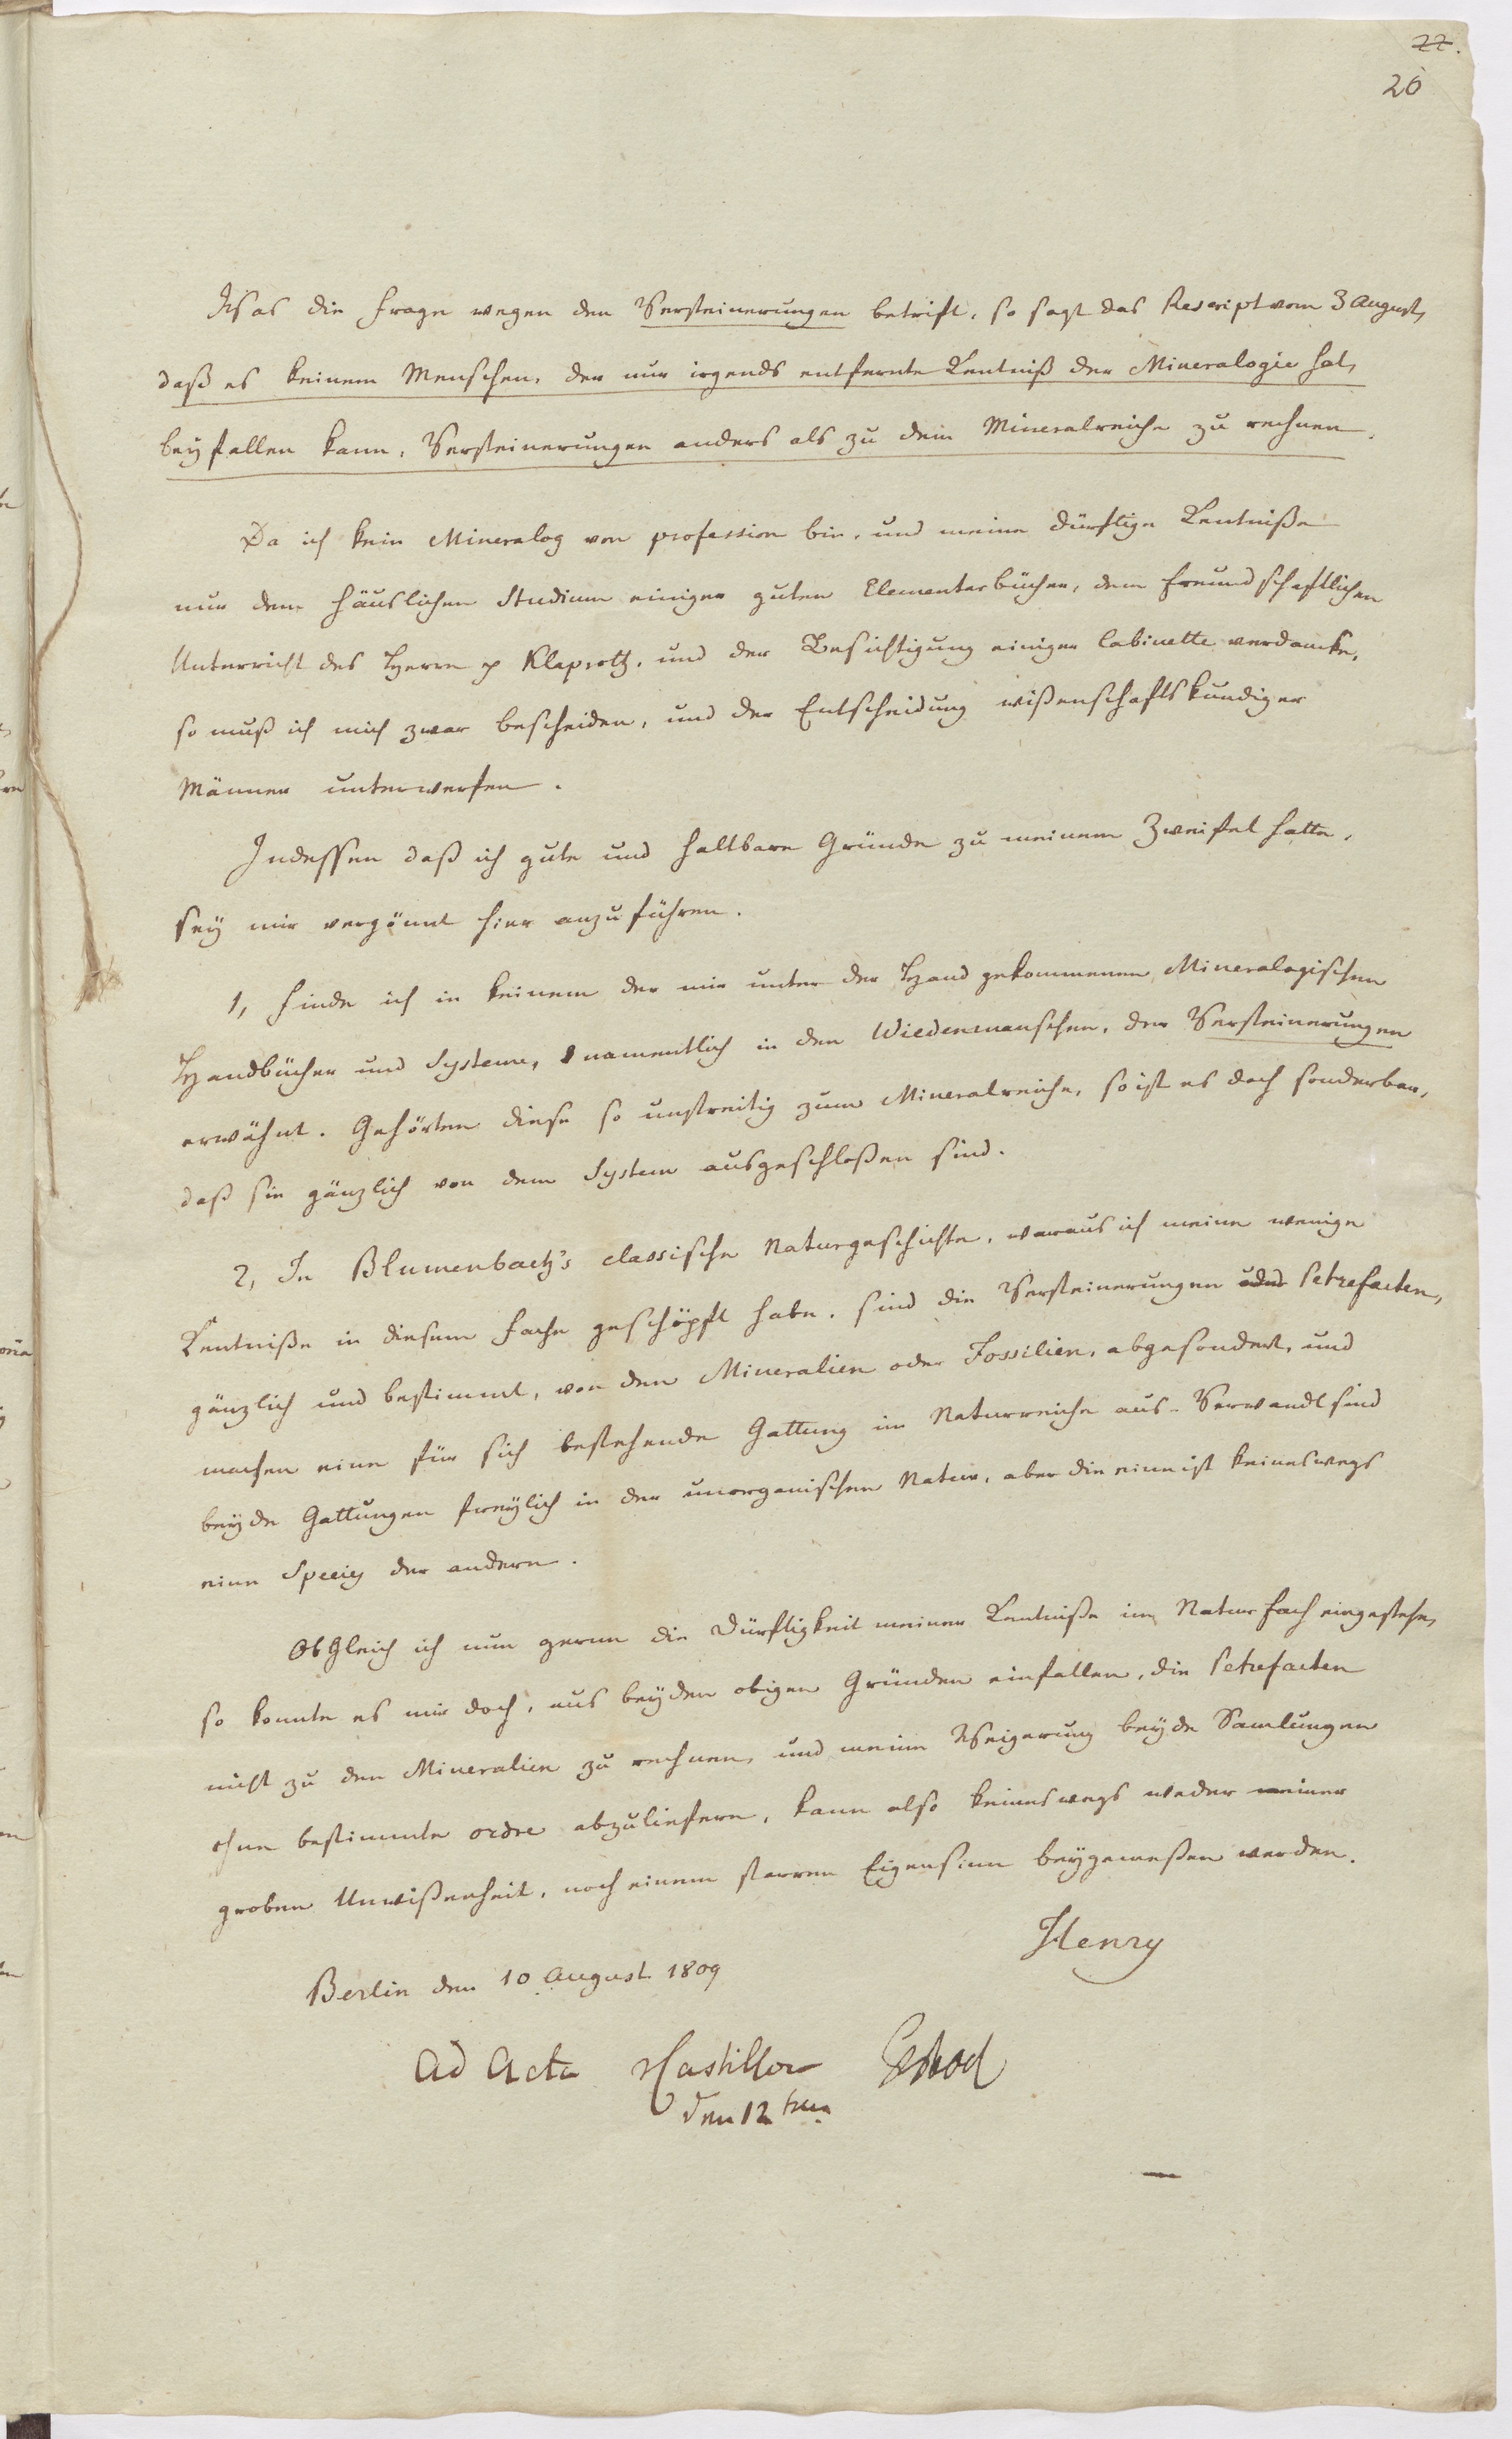 22.
26
Was die Frage wegen den Versteinerungen betrift, so sagt das Rescript vom 3 August,
daß es keinem Menschen, der nur irgends entfernte Kentniß der Mineralogie hat,
beyfallen kann, Versteinerungen anders als zu dem Mineralreiche zu rechnen.
Da ich kein Mineralog von profession bin, und meine dürftige Kentniße
nur dem häuslichen Studium einiger guten Elementarbücher, dem freundschaftlichen
Unterricht des Herrn p Klaproth, und der Besichtigung einiger Cabinette verdancke,
so muß ich mich zwar bescheiden, und der Entscheidung wißenschaftskundiger
Männer unterwerfen.
Indessen daß ich gute und haltbare Gründe zu meinem Zweifel hatte,
sey mir vergönnt hier anzuführen.
1, Finde ich in keinem der mir unter der Hand gekommenen Mineralogischen
Handbücher und Systeme, namentlich in den Wiedenmanschen, der Versteinerungen
erwähnt. Gehörten diese so unstreitig zum Mineralreiche, so ist es doch sonderbar,
daß sie gänzlich von dem System ausgeschloßen sind.
2, In Blumenbach's classische Naturgeschichte, woraus ich meine wenige
Kentniße in diesem Fache geschöpft habe, sind die Versteinerungen oder Petrefacten,
gänzlich und bestimmt, von den Mineralien oder Fossilien, abgesondert, und
machen eine für sich bestehende Gattung im Naturreiche aus. Verwandt sind
beyde Gattungen freylich in der unorganischen Natur, aber die eine ist keineswegs
eine Species der andern.
Obgleich ich nun gerne die Dürftigkeit meiner Kentniße im Naturfach eingestehe,
so konnte es mir doch, aus beyden obigen Gründen einfallen, die Petrefacten
nicht zu den Mineralien zu rechnen, und meine Weigerung beyde Samlungen
ohne bestimmte ordre abzuliefern, kann also keineswegs weder meiner
groben Unwißenheit, noch einem starren Eigensinn beygemeßen werden.
Henry
Berlin den 10 August 1809
Ad Acta Castillon
den 12ten